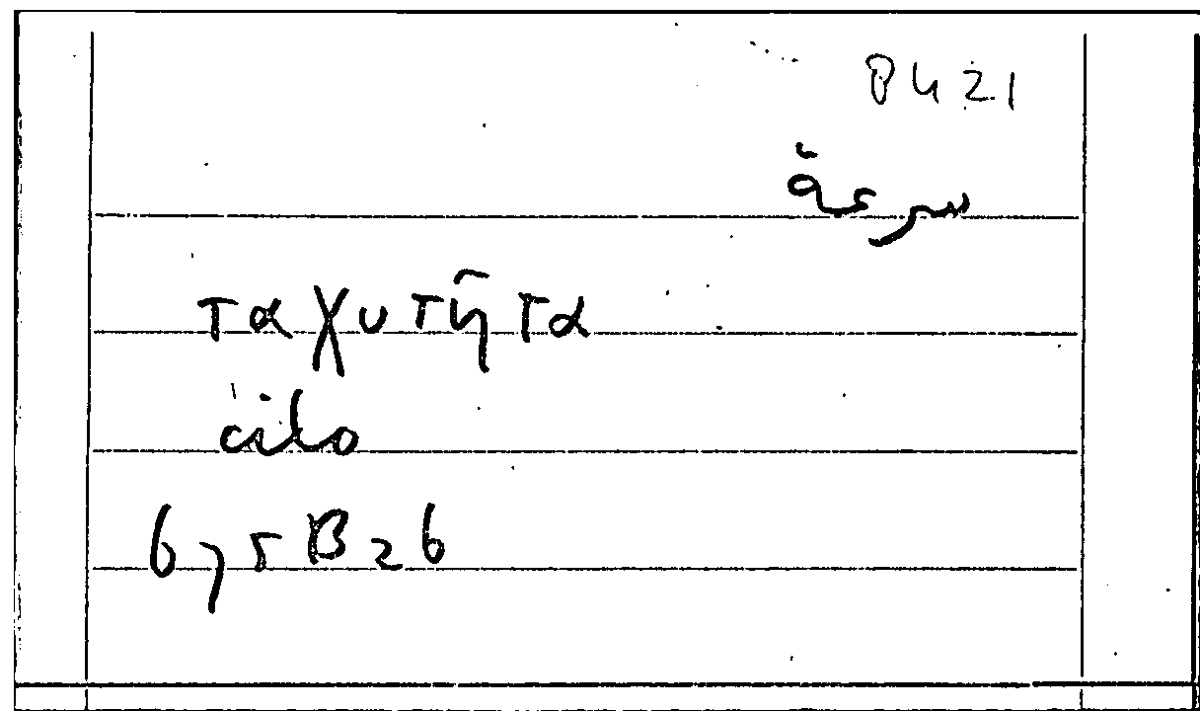 8421
سرعة
ταχυτῆτα
cito
675 B 26